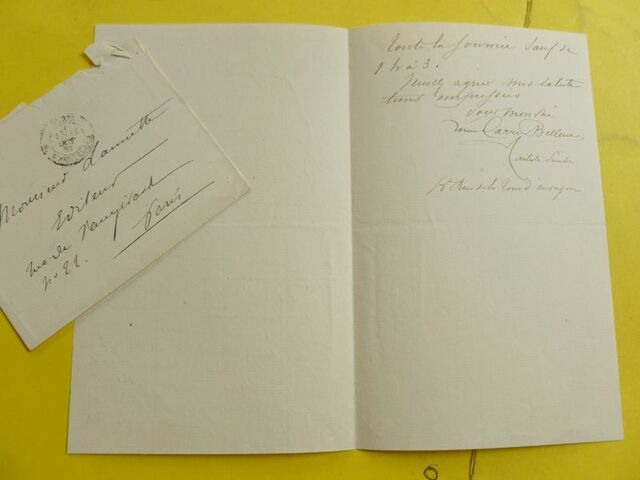 Monsieur Launette
Editeur
rue de Vaugirard
no 22.
Paris
toute la journée sauf de
1 h à 3.
Veuillez agréer mes saluta-
tions empressées
Louis Carrier Belleuse
artiste Peintre
15 Rue de la Tour d'auvergne